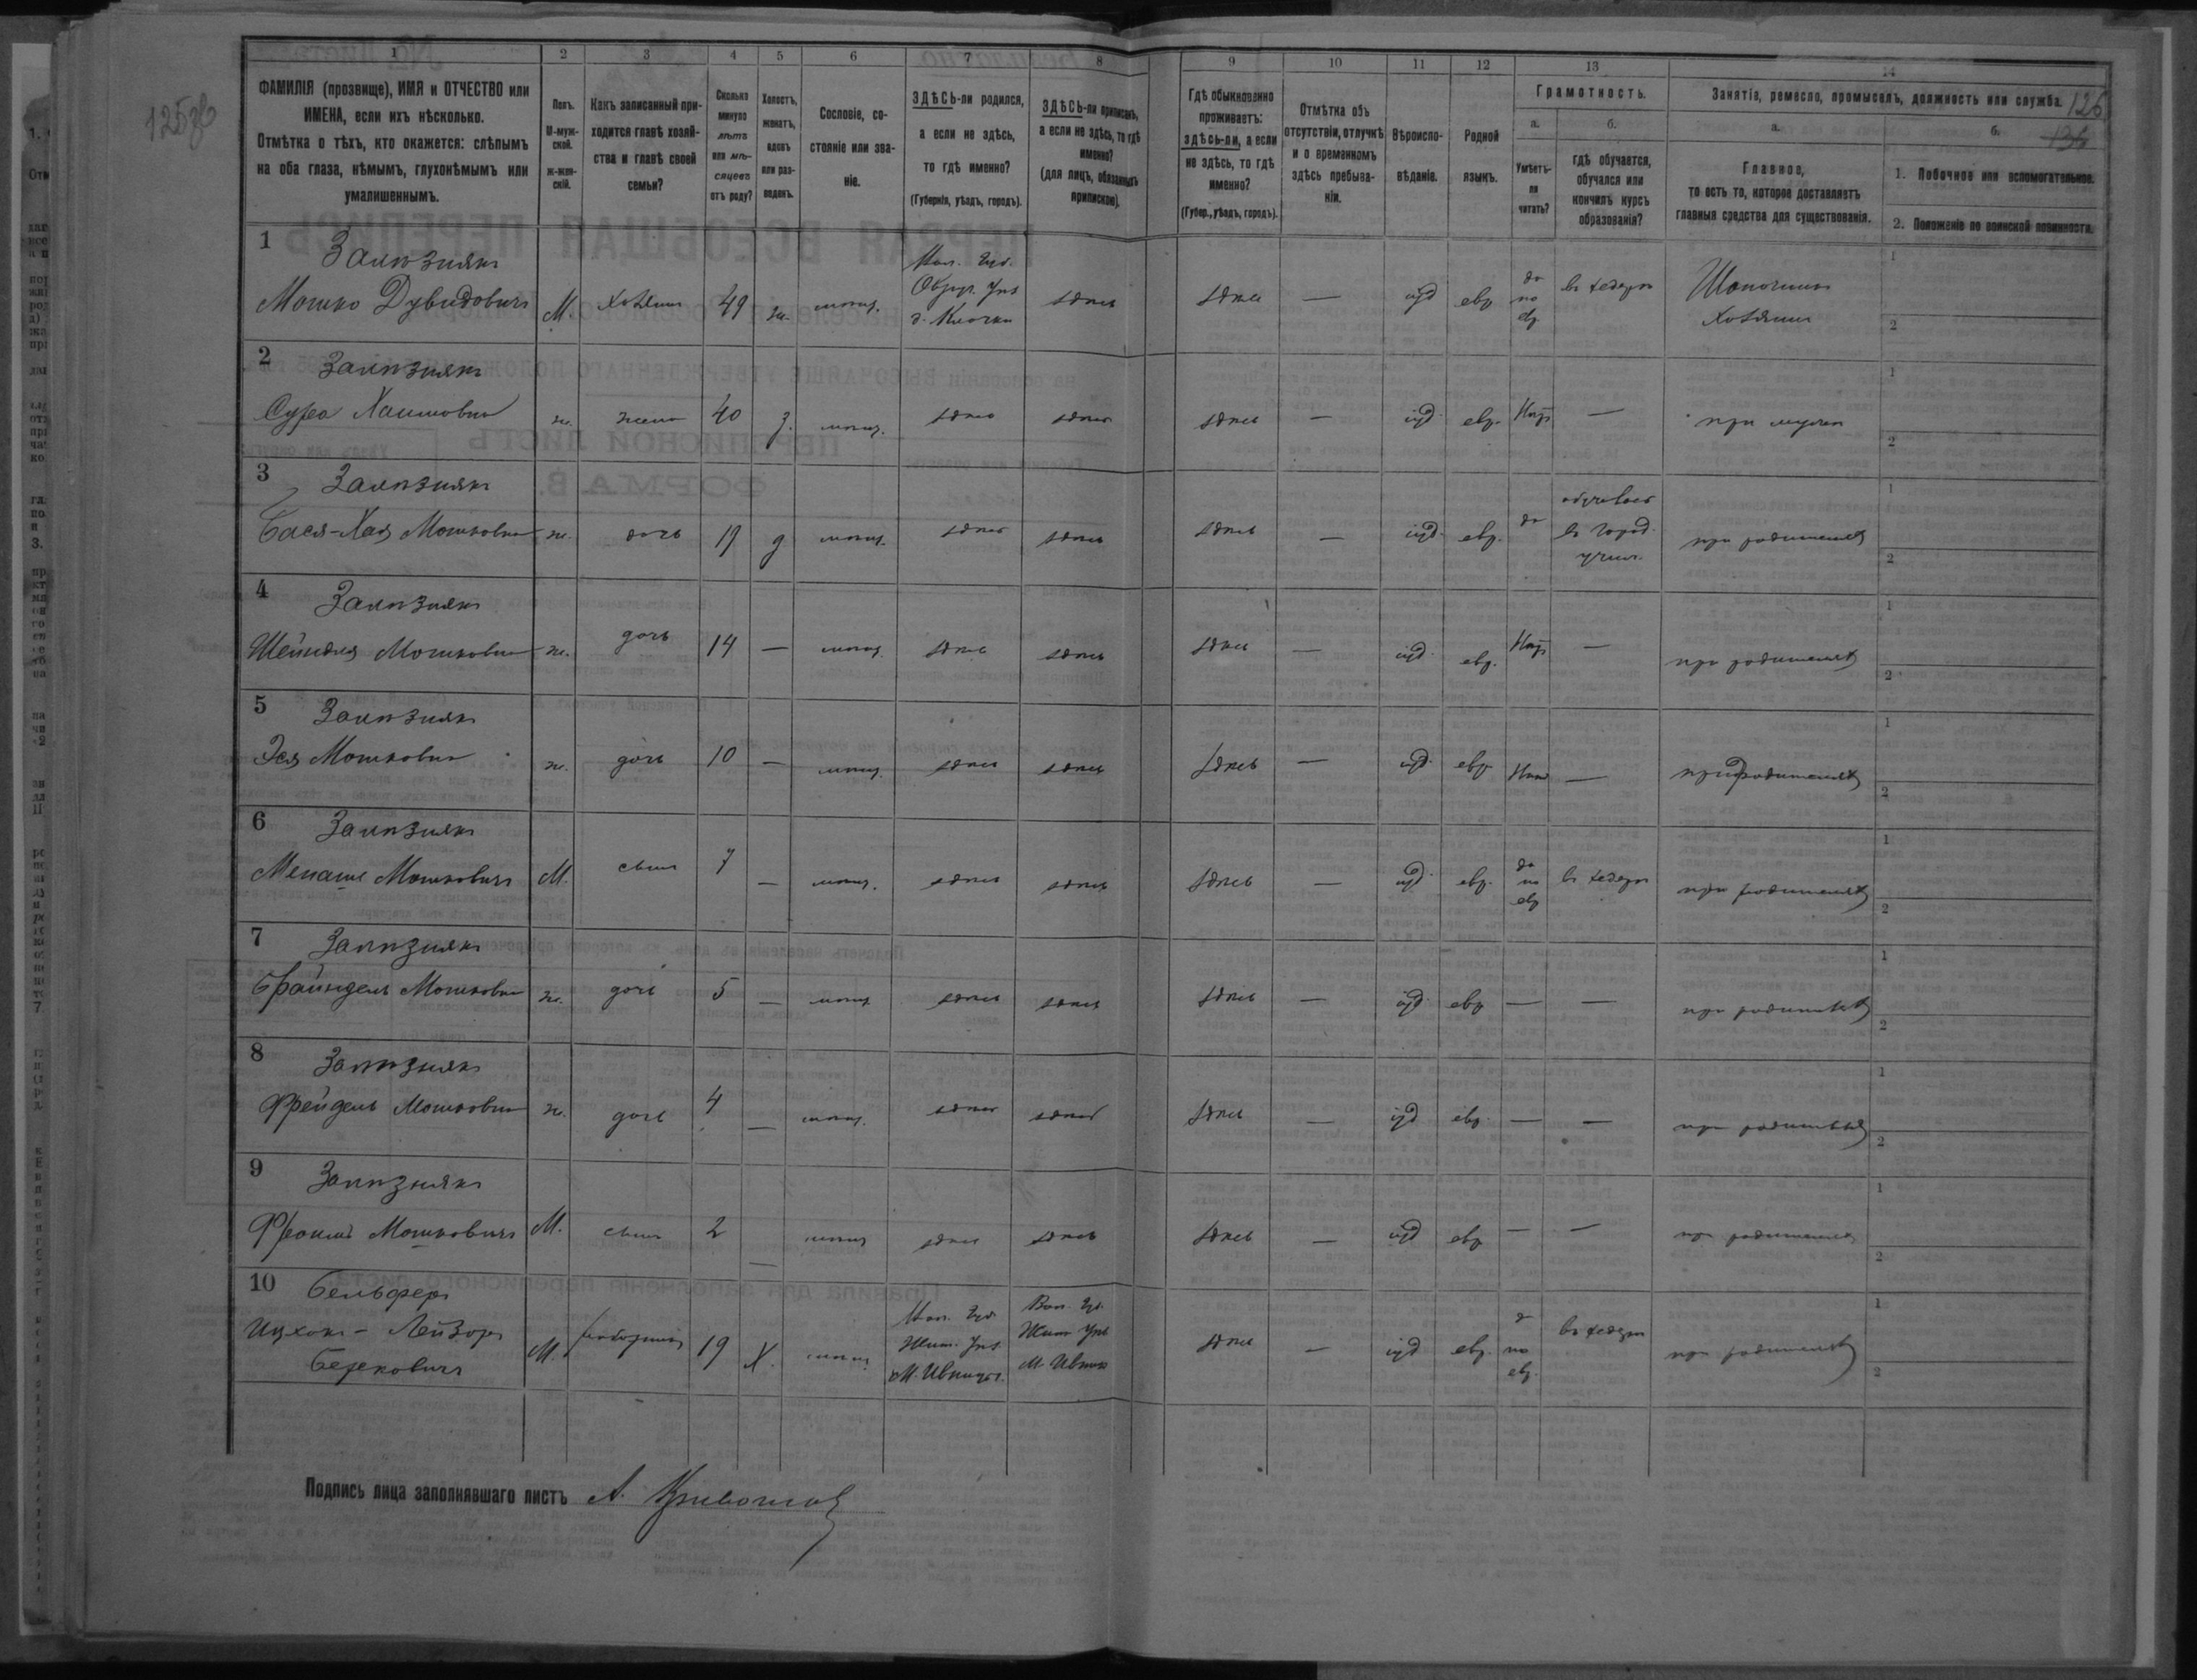 125об
126
136
1 2 3 4 5 6 7 8 9 10 11 12 13 14
ФАМИЛІЯ (прозвище), ИМЯ и ОТЧЕСТВО или ИМЕНА, если ихъ нѣсколько.
Отмѣтка о тѣхъ, кто окажется: слѣпымъ на оба глаза, нѣмымъ, глухонѣмымъ или умалишеннымъ.
Полъ. М-мужской. ж-женскій.
Какъ записанный приходится главѣ хозяйства и главѣ своей семьи?
Сколько минуло лѣтъ или мѣсяцевъ отъ роду?
Холостъ, женатъ, вдовъ или разведенъ.
Сословіе, состояніе или званіе.
ЗДѢСЬ-ли родился, а если не здѣсь, то гдѣ именно? (Губернія, уѣздъ, городъ).
ЗДѢСЬ-ли приписанъ, а если не здѣсь, то гдѣ именно? (для лицъ, обязанныхъ припискою).
Гдѣ обыкновенно проживаетъ: здѣсь-ли, а если не здѣсь, то гдѣ именно? (Губер., уѣздъ, городъ).
Отмѣтка объ отсутствіи, отлучкѣ и о временномъ здѣсь пребываніи.
Вѣроисповѣданіе.
Родной языкъ.
Грамотность.
а. Умѣетъ-ли читать?
б. гдѣ обучается, обучался или кончилъ курсъ образованія?
Занятія, ремесло, промыселъ, должность или служба.
а. Главное, то есть то, которое доставляетъ главныя средства для существованія.
б. 1. Побочное или вспомогательное.
2. Положеніе по воинской повинности.
1 Залѣзнякъ
Мошко Дувидовичъ М. хозяинъ 49 ж. мѣщ. Обруч. Уѣз здѣсь здѣсь — іуд евр да по евр въ хедерѣ хозяинъ
2 Залѣзнякъ
Сура Хаимовна ж. жена 40 з. мѣщ. здѣсь здѣсь здѣсь — іуд. евр. Нѣтъ — при мужѣ
3 Залѣзнякъ
Бася-Хая Мошковна ж. дочь 19 д мѣщ. здѣсь здѣсь здѣсь — іуд. евр. да въ город. учил. при родителяхъ
4 Залѣзнякъ
Шейндля Мошковна ж. дочь 14 — мѣщ. здѣсь здѣсь здѣсь — іуд. евр. Нѣтъ — при родителяхъ
5 Залѣзнякъ
Эся Мошковна ж. дочь 10 — мѣщ. здѣсь здѣсь здѣсь — іуд. евр. — при родителяхъ
6 Залѣзнякъ
Менаше Мошковичъ М. сынъ 7 — мѣщ. здѣсь здѣсь здѣсь — іуд. евр. да по евр въ хедерѣ при родителяхъ
7 Залѣзнякъ
Брайндель Мошковна ж. дочь 5 — мѣщ здѣсь здѣсь здѣсь — іуд. евр — — при родителяхъ
8 Залѣзнякъ
Фрейдель Мошковна ж. дочь 4 — мѣщ. здѣсь здѣсь здѣсь — іуд евр. — — при родителяхъ
9 Залѣзнякъ
Мошковичъ М. сынъ 2 — мѣщ здѣсь здѣсь здѣсь — іуд евр — — при родителяхъ
10 Бельферъ
Ицхокъ-Лейзоръ
Берковичъ М. 19 Х. мѣщ. Жит. Уѣз. Вол. Гу. Жит Уѣз здѣсь — іуд евр. да по евр. въ хедерѣ при родителяхъ
Подпись лица заполнявшаго листъ А.